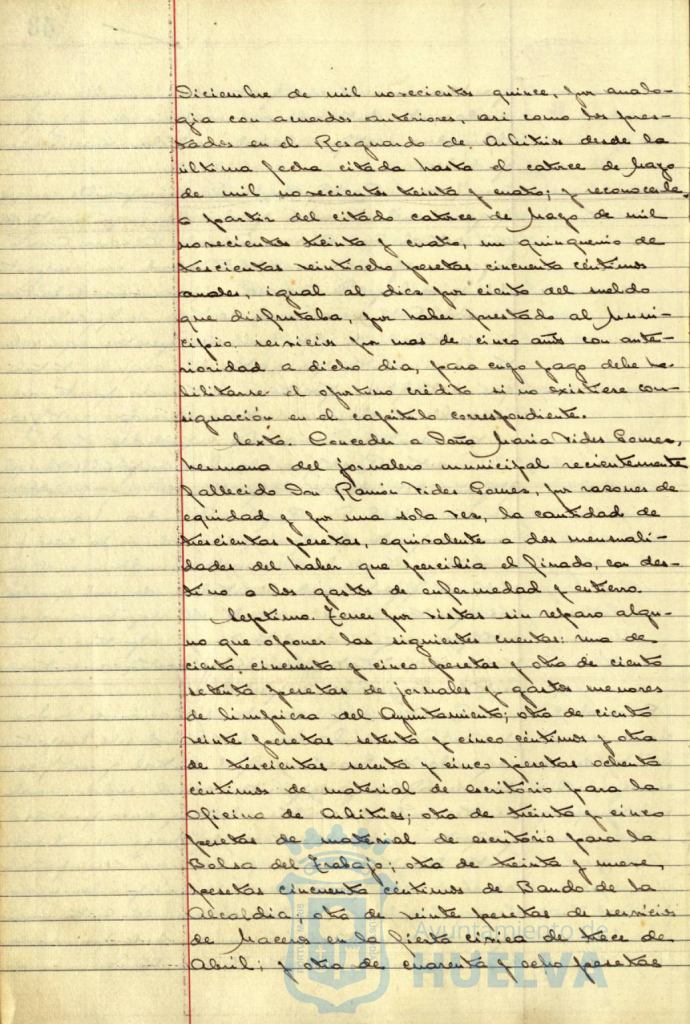 Diciembre de mil novecientos quince, por analo-
gia con acuerdos anteriores, asi como los pres-
tados en el Resguardo de Arbitrios desde la
ultima fecha citada hasta el catorce de Mayo
de mil novecientos treinta y cuatro; y reconocerle,
a partir del citado catorce de Mayo de mil
novecientos treinta y cuatro, un quinquenio de
trescientas veintiocho pesetas cincuenta céntimos
anuales, igual al diez por ciento del sueldo
que disfrutaba, por haber prestado al Muni-
cipio, servicios por mas de cinco años con ante-
rioridad a dicho dia, para cuyo pago debe ha-
bilitarse el oportuno crédito si no existiere con-
signación en el capitulo correspondiente.
Sexto. Conceder a Doña Maria Vides Gomez,
hermana del jornalero municipal recientemente
fallecido Don Ramón Vides Gomez, por razones de
equidad y por una sola vez, la cantidad de
trescientas pesetas, equivalente a dos mensuali-
dades del haber que percibia el finado, con des-
tino a los gastos de enfermedad y entierro.
Septimo. Tener por vistas sin reparo algu-
no que oponer las siguientes cuentas: una de
ciento cincuenta y cinco pesetas y otra de ciento
setenta pesetas de jornales y gastos menores
de limpieza del Ayuntamiento; otra de ciento
veinte pesetas setenta y cinco céntimos y otra
de trescientas sesenta y cinco pesetas ochenta
céntimos de material de escritorio para la
Oficina de Arbitrios; otra de treinta y cinco
pesetas de material de escritorio para la
Bolsa del Trabajo; otra de treinta y nueve
pesetas cincuenta céntimos de Bando de la
Alcaldia; otra de veinte pesetas de servicios
de Maceros en la fiesta civica de trece de
Abril; y otra de cuarenta y ocho pesetas
Ayuntamiento de
HUELVA